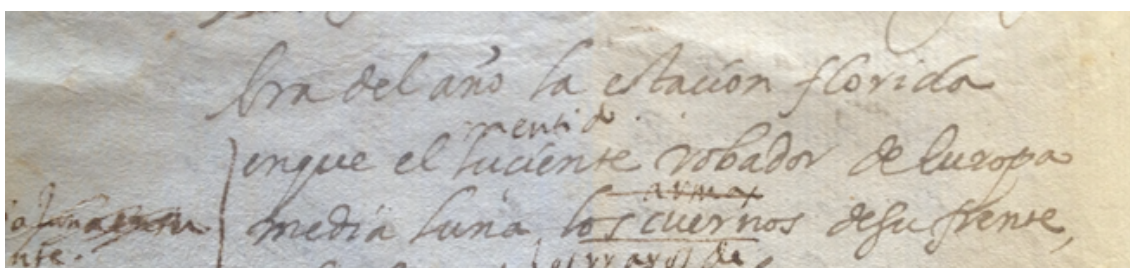 Era del año la estación florida
mentido
enque el luciente robador de Europa
armas
media luna los cuernos desu frente,
nte.